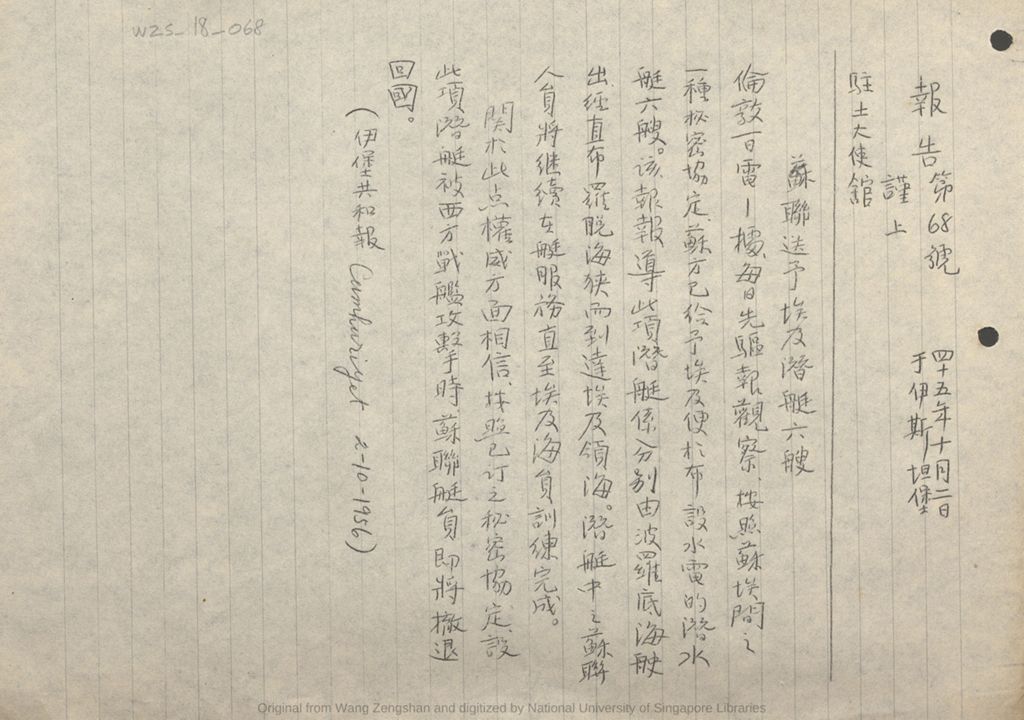 WZS_18_068
報告第68號
四十五年十月二日
于伊斯坦堡
謹上
駐土大使館
蘇聯送予埃及潛艇六艘
倫敦一日電—據每日先驅報觀察、按照蘇埃間之
一種秘密協定、蘇方已給予埃及便於布設水雷的潛水
艇六艘。该報報導此項潛艇係分別由波羅底海駛
出、經直布羅脫海狹而到達埃及領海。潛艇中之蘇聯
人員將继續在艇服務直至埃及海員訓練完成。
関於此点權威方面相信、按照已订之秘密協定、設
此項潛艇被西方戰艦攻擊時、蘇聯艇員即將撤退
回國。
(伊堡共和報 Cumhuriyet 2-10-1956)
Original from Wang Zengshan and digitized by National University of Singapore Libraries